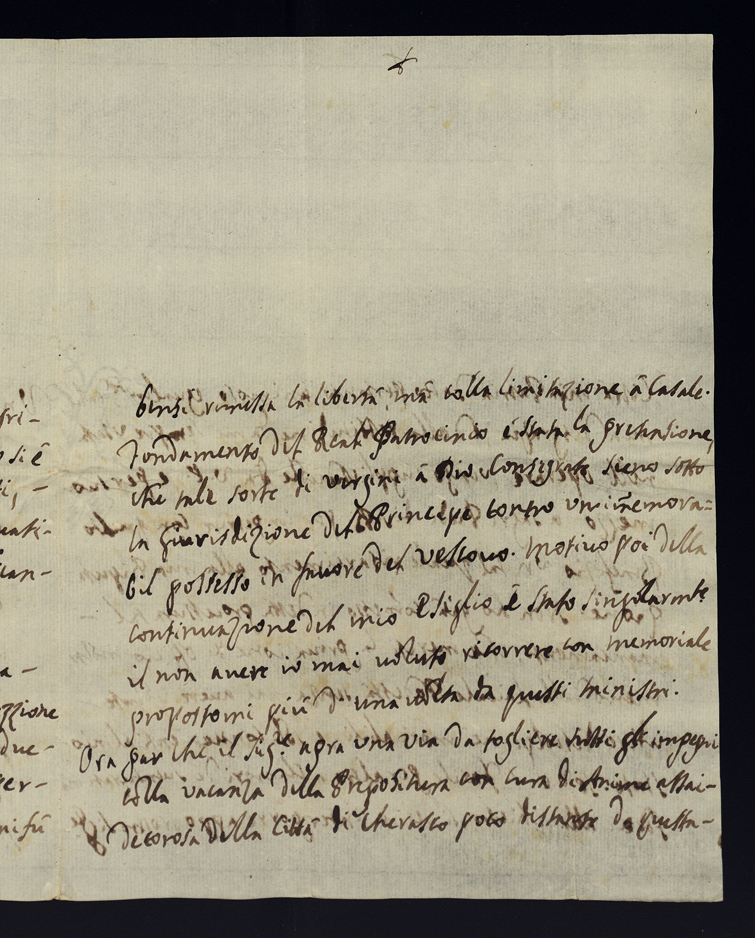 bensi rimessa la libertà, mà colla limitazione à Casale.
Fondamento del Real Patrocinio è stata la pretensione,
che tale sorte di vergini à Dio Consigrate sieno sotto
la giurisdizione del Principe contro un'immemora=
bil possesso in favore del Vescovo. Motivo poi della
continuazione del mio Esiglio è stato singolarmte
il non avere io mai voluto ricorrere con memoriale
propostomi più d'una volta da questi Ministri.
Ora par che il Sigre apra una via da togliere tutti gl'impegni
colla vacanza della Prepositura con cura di Anime assai-
decorosa della Città di Cherasco poco distante da questa-
fri-
si è
-
-
a -
zzione
due-
per-
ni fù